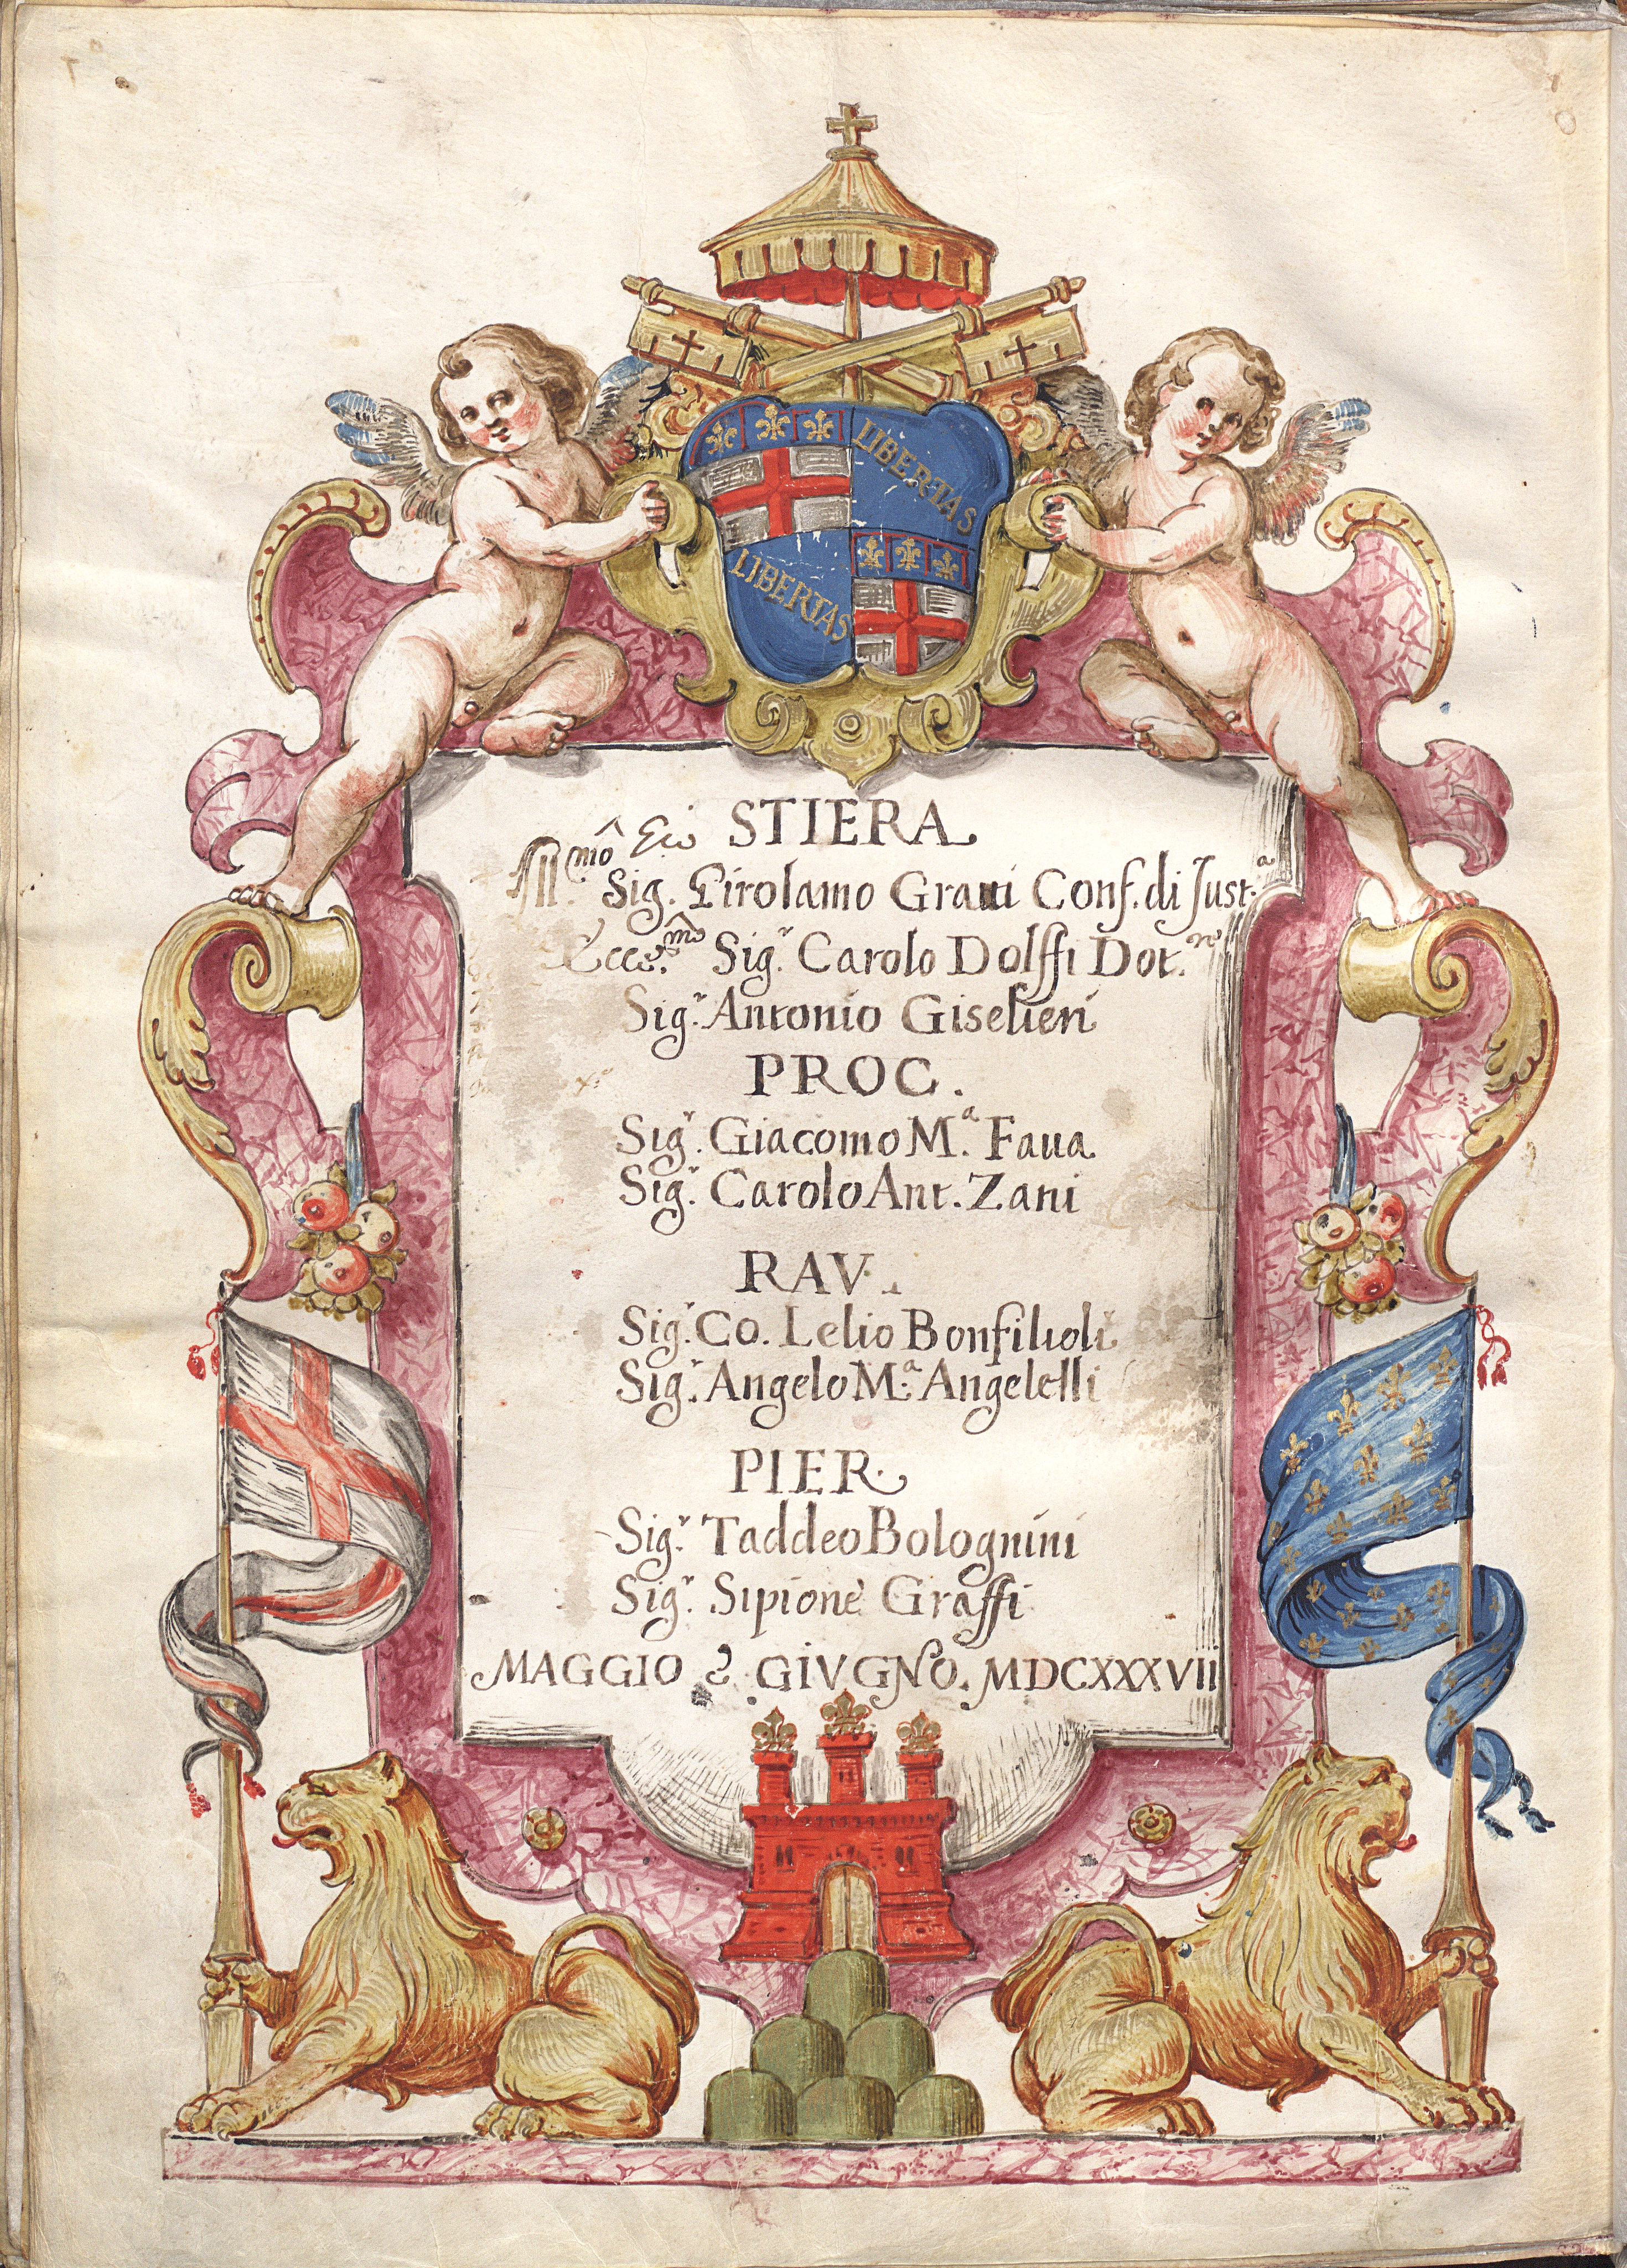 LIBERTAS
LIBERTAS
STIERA
Ill.mo Sig. Girolamo Graui Conf. di Just.a
Ecce.mo Sig.r Carolo Dolffi Dot.re
Sig.r Antonio Giselieri
PROC.
Sig.r Giacomo M.a Faua
Sig.r Carolo Ant. Zani
RAV.
Sig.r Co. Lelio Bonfilioli
Sig.r Angelo M.a Angelelli
PIER.
Sig.r Taddeo Bolognini
Sig.r Sipione Graffi
MAGGIO e GIVGNO. MDCXXXVII